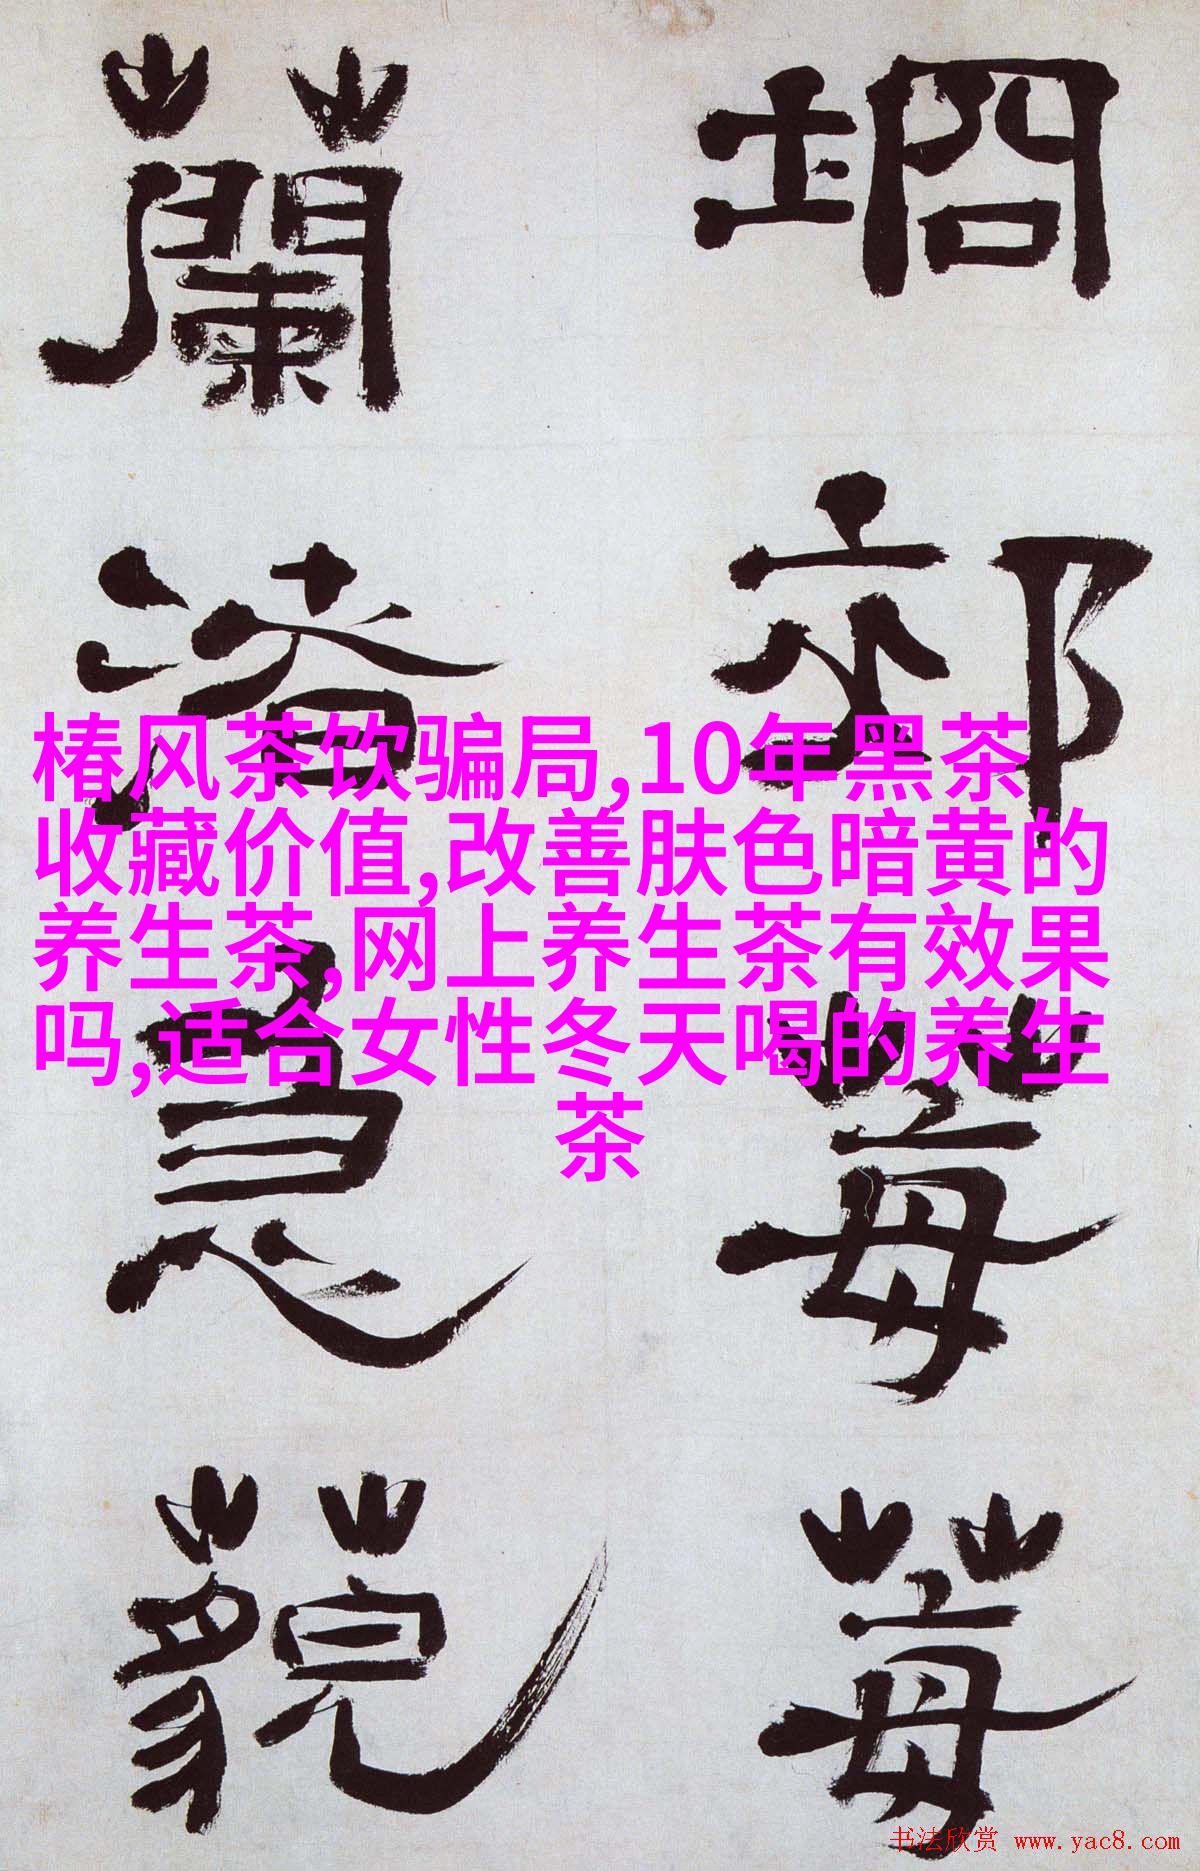 坰郊莓莓
蘭渚急藐
椿风茶饮骗局,10年黑茶
收藏价值,改善肤色暗黄的
养生茶,网上养生茶有效果
吗,适合女性冬天喝的养生
茶
书法欣赏 www.yac8.com